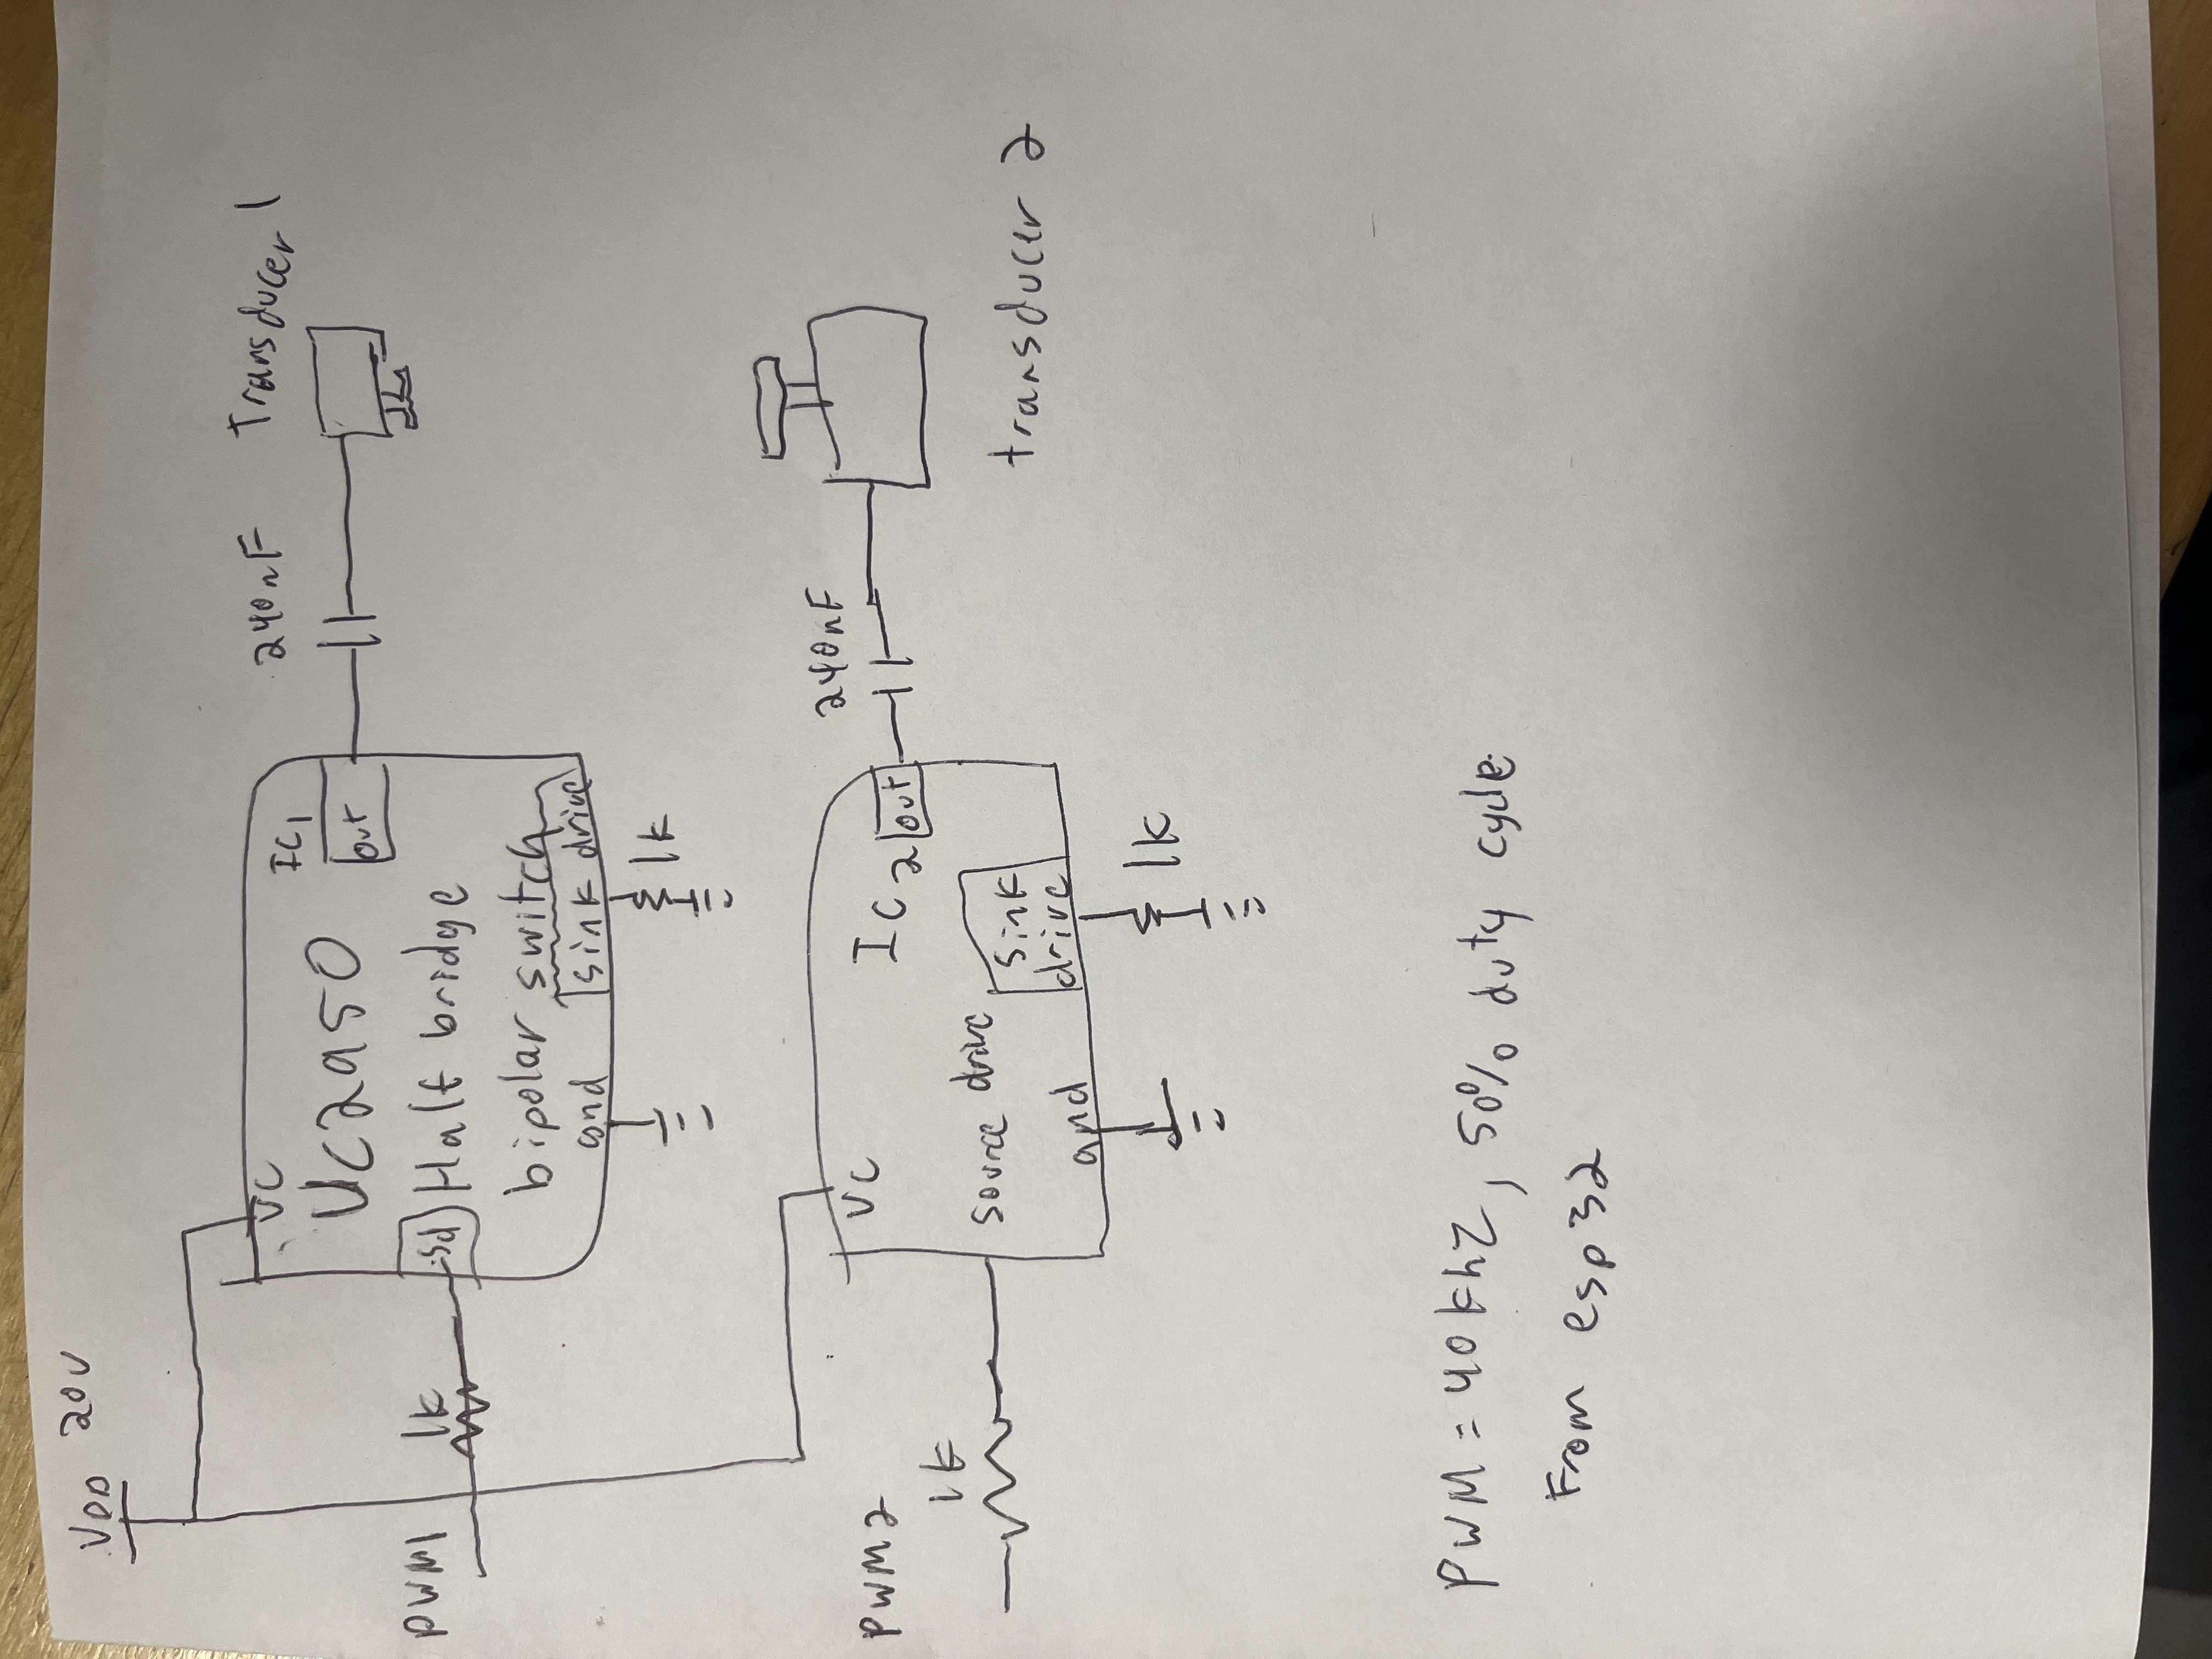 VDD 20V
PWM1
1k
VC
IC1
UC2950
out
sd
Half bridge
bipolar switch
gnd
sink drive
1k
240nF
Transducer 1
PWM2
1k
VC
IC2
out
source drive
sink
drive
gnd
1k
240nF
transducer 2
PWM = 40khz, 50% duty cycle
From esp32